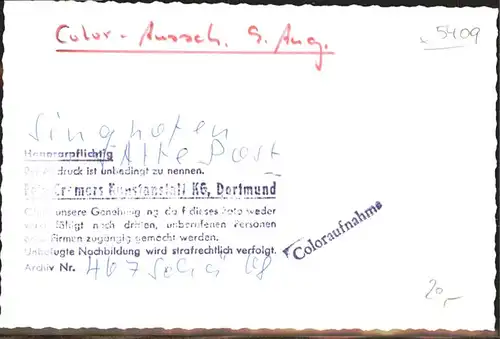 Color - Aussch. S. Aug.
5409
Singhofen
Honorarpflichtig
Alte Post
druck ist unbedingt zu nennen.
Cramers Kunstanstalt KG, Dortmund
unsere Genehmigung darf dieses Foto weder
noch dritten, unberufenen Personen
Firmen zugängig gemacht werden.
Unbefugte Nachbildung wird strafrechtlich verfolgt.
Archiv Nr. 467
Coloraufnahme
20,-